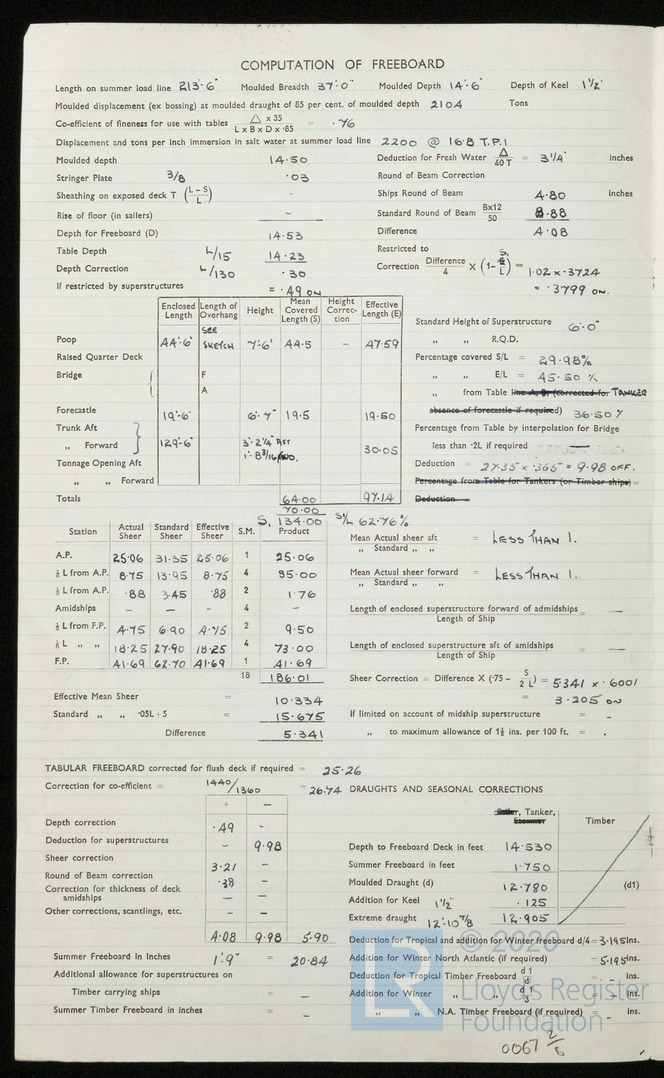 COMPUTATION OF FREEBOARD
Length on summer load line 213'·6" Moulded Breadth 37'·0" Moulded Depth 14'·6" Depth of Keel 1½"
Moulded displacement (ex bossing) at moulded draught of 85 per cent. of moulded depth 2104 Tons
Co-efficient of fineness for use with tables △ x 35 / L x B x D x ·85 = ·76
Displacement and tons per inch immersion in salt water at summer load line 2200 @ 16·8 T.P.I
Moulded depth 14·50
Stringer Plate 3/8 ·03
Sheathing on exposed deck T (L–S / L) -
Rise of floor (in sailers) -
Depth for Freeboard (D) 14·53
Table Depth L/15 14·23
Depth Correction L/130 ·30
If restricted by superstructures = ·49 ON
Deduction for Fresh Water △ / 40 T = 3¼" inches
Round of Beam Correction
Ships Round of Beam 4·80 inches
Standard Round of Beam Bx12 / 50 8·88
Difference 4·08
Restricted to
Correction Difference / 4 X (1- S, / L) = 1·02 x ·3724
= ·3799 ON.
Enclosed Length Length of Overhang Height Mean Covered Length (S) Height Correc- tion Effective Length (E)
Poop 44'·6" SEE SKETCH 7'·6" 44.5 - 47·59
Raised Quarter Deck
Bridge { F
A
Forecastle 19'·6" 6'·7" 19·5 19·50
Trunk Aft
„ Forward } 129'·6" 3'·2¼" AFT 1'·8 3/16" FWD. 30·05
Tonnage Opening Aft
„ „ Forward
Totals 64·00 97·14
70·00
S, 134·00 S/L 62·76%
Standard Height of Superstructure 6'·0"
„ „ R.Q.D.
Percentage covered S/L = 29·98%
„ „ E/L = 45·50 %
„ from Table line A, B, (corrected for TANKER
absence of forecastle if required) 36·50 %
Percentage from Table by interpolation for Bridge
less than ·2L if required —
Deduction = 27·35 x ·365 = 9·98 OFF.
Percentage from Table for Tankers (or Timber ships) =
Deduction =
Station Actual Sheer Standard Sheer Effective Sheer S.M. Product
A.P. 25·06 31·35 25·06 1 25·06
⅙ L from A.P. 8·75 13·95 8·75 4 35·00
⅓ L from A.P. ·88 3·45 ·88 2 1·76
Amidships - - - 4 -
⅓ L from F.P. 4·75 6·90 4·75 2 9·50
⅙ L „ „ 18·25 27·90 18·25 4 73·00
F.P. 41·69 62·70 41·69 1 41·69
18 186·01
Effective Mean Sheer = 10·334
Standard „ „ ·05L+5 = 15·675
Difference 5·341
Mean Actual sheer aft
„ Standard „ „ = LESS THAN 1.
Mean Actual sheer forward
„ Standard „ „ = LESS THAN 1.
Length of enclosed superstructure forward of admidships
Length of Ship = —
Length of enclosed superstructure aft of amidships
Length of Ship = —
Sheer Correction = Difference X (·75 - S / 2 L) = 5·341 x ·6001
= 3·205 ON
If limited on account of midship superstructure = -
„ to maximum allowance of 1½ ins. per 100 ft. = .
TABULAR FREEBOARD corrected for flush deck if required = 25·26
Correction for co-efficient = 1440/1360 = 26·74
+ —
Depth correction ·49 -
Deduction for superstructures - 9·98
Sheer correction 3·21 -
Round of Beam correction ·38 -
Correction for thickness of deck amidships - -
Other corrections, scantlings, etc. - -
4·08 9·98 5·90
Summer Freeboard in Inches 1'·9" = 20·84
Additional allowance for superstructures on
Timber carrying ships = -
Summer Timber Freeboard in inches = -
DRAUGHTS AND SEASONAL CORRECTIONS
Tanker, Steamer Timber
Depth to Freeboard Deck in feet 14·530
Summer Freeboard in feet 1·750
Moulded Draught (d) 12·780 (d1)
Addition for Keel 1½" ·125
Extreme draught 12'·10 7/8 12·905
Deduction for Tropical and addition for Winter freeboard d/4 = 3·195 ins.
Addition for Winter North Atlantic (if required) = 5·195 ins.
Deduction for Tropical Timber Freeboard d 1 / 4 = - ins.
Addition for Winter „ „ d 1 / 3 = - ins.
„ „ N.A. Timber Freeboard (if required) = - ins.
© 2020
LR
Lloyd's Register
Foundation
0067 2/6